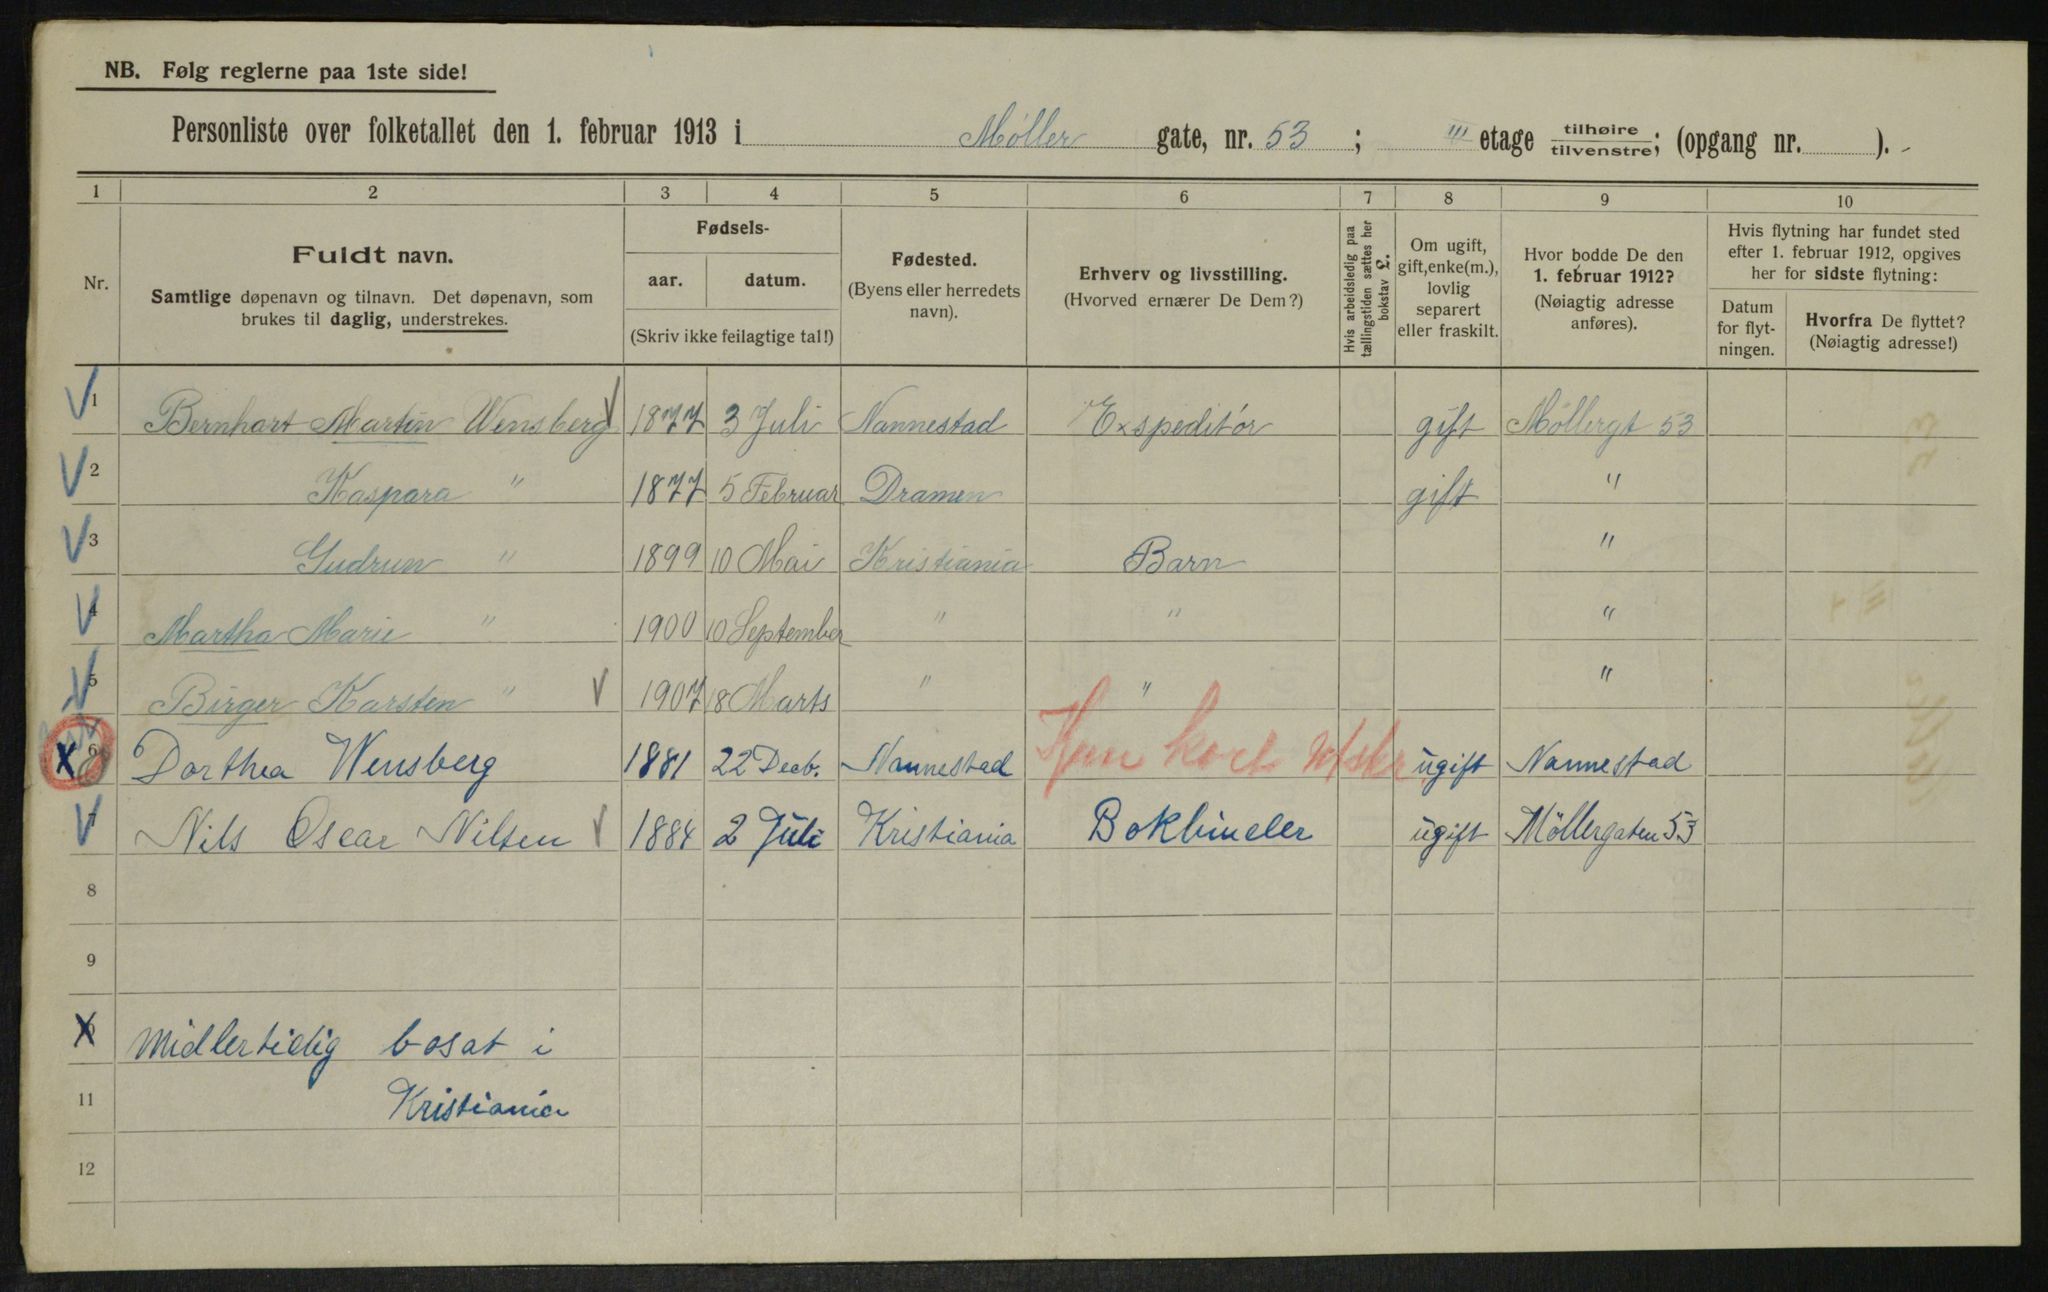 NB. Følg reglerne paa 1ste side!
Personliste over folketallet den 1. februar 1913 i Møller gate, nr. 53 ; III etage tilhøire tilvenstre; (opgang nr. ).
1 2 3 4 5 6 7 8 9 10
Nr.
Fuldt navn.
Samtlige døpenavn og tilnavn. Det døpenavn, som
brukes til daglig, understrekes.
Fødsels-
aar. datum.
(Skriv ikke feilagtige tal!)
Fødested.
(Byens eller herredets
navn).
Erhverv og livsstilling.
(Hvorved ernærer De Dem?)
Hvis arbeidsledig paa
tællingstiden sættes her
bokstav £.
Om ugift,
gift, enke(m.),
lovlig
separert
eller fraskilt.
Hvor bodde De den
1. februar 1912?
(Nøiagtig adresse
anføres).
Hvis flytning har fundet sted
efter 1. februar 1912, opgives
her for sidste flytning:
Datum
for flyt-
ningen.
Hvorfra De flyttet?
(Nøiagtig adresse!)
1 Bernhart Martin Wensberg 1877 3 Juli Nannestad Expeditór gift Møllergt 53
2 Kaspara " 1877 5 Februar Dramen gift "
3 Gudrun " 1899 10 Mai Kristiania Barn "
4 Martha Marie " 1900 10 September " " "
5 Birger Karsten " 1907 18 Marts " " "
6 Dorthea Wensberg 1881 22 Decb. Nannestad Kun kort ugift Nannestad
7 Nils Oscar Nilsen 1884 2 Juli Kristiania Bokbinder ugift Møllergaten 53
8
9
X Midlertidig bosat i
11 Kristiania
12